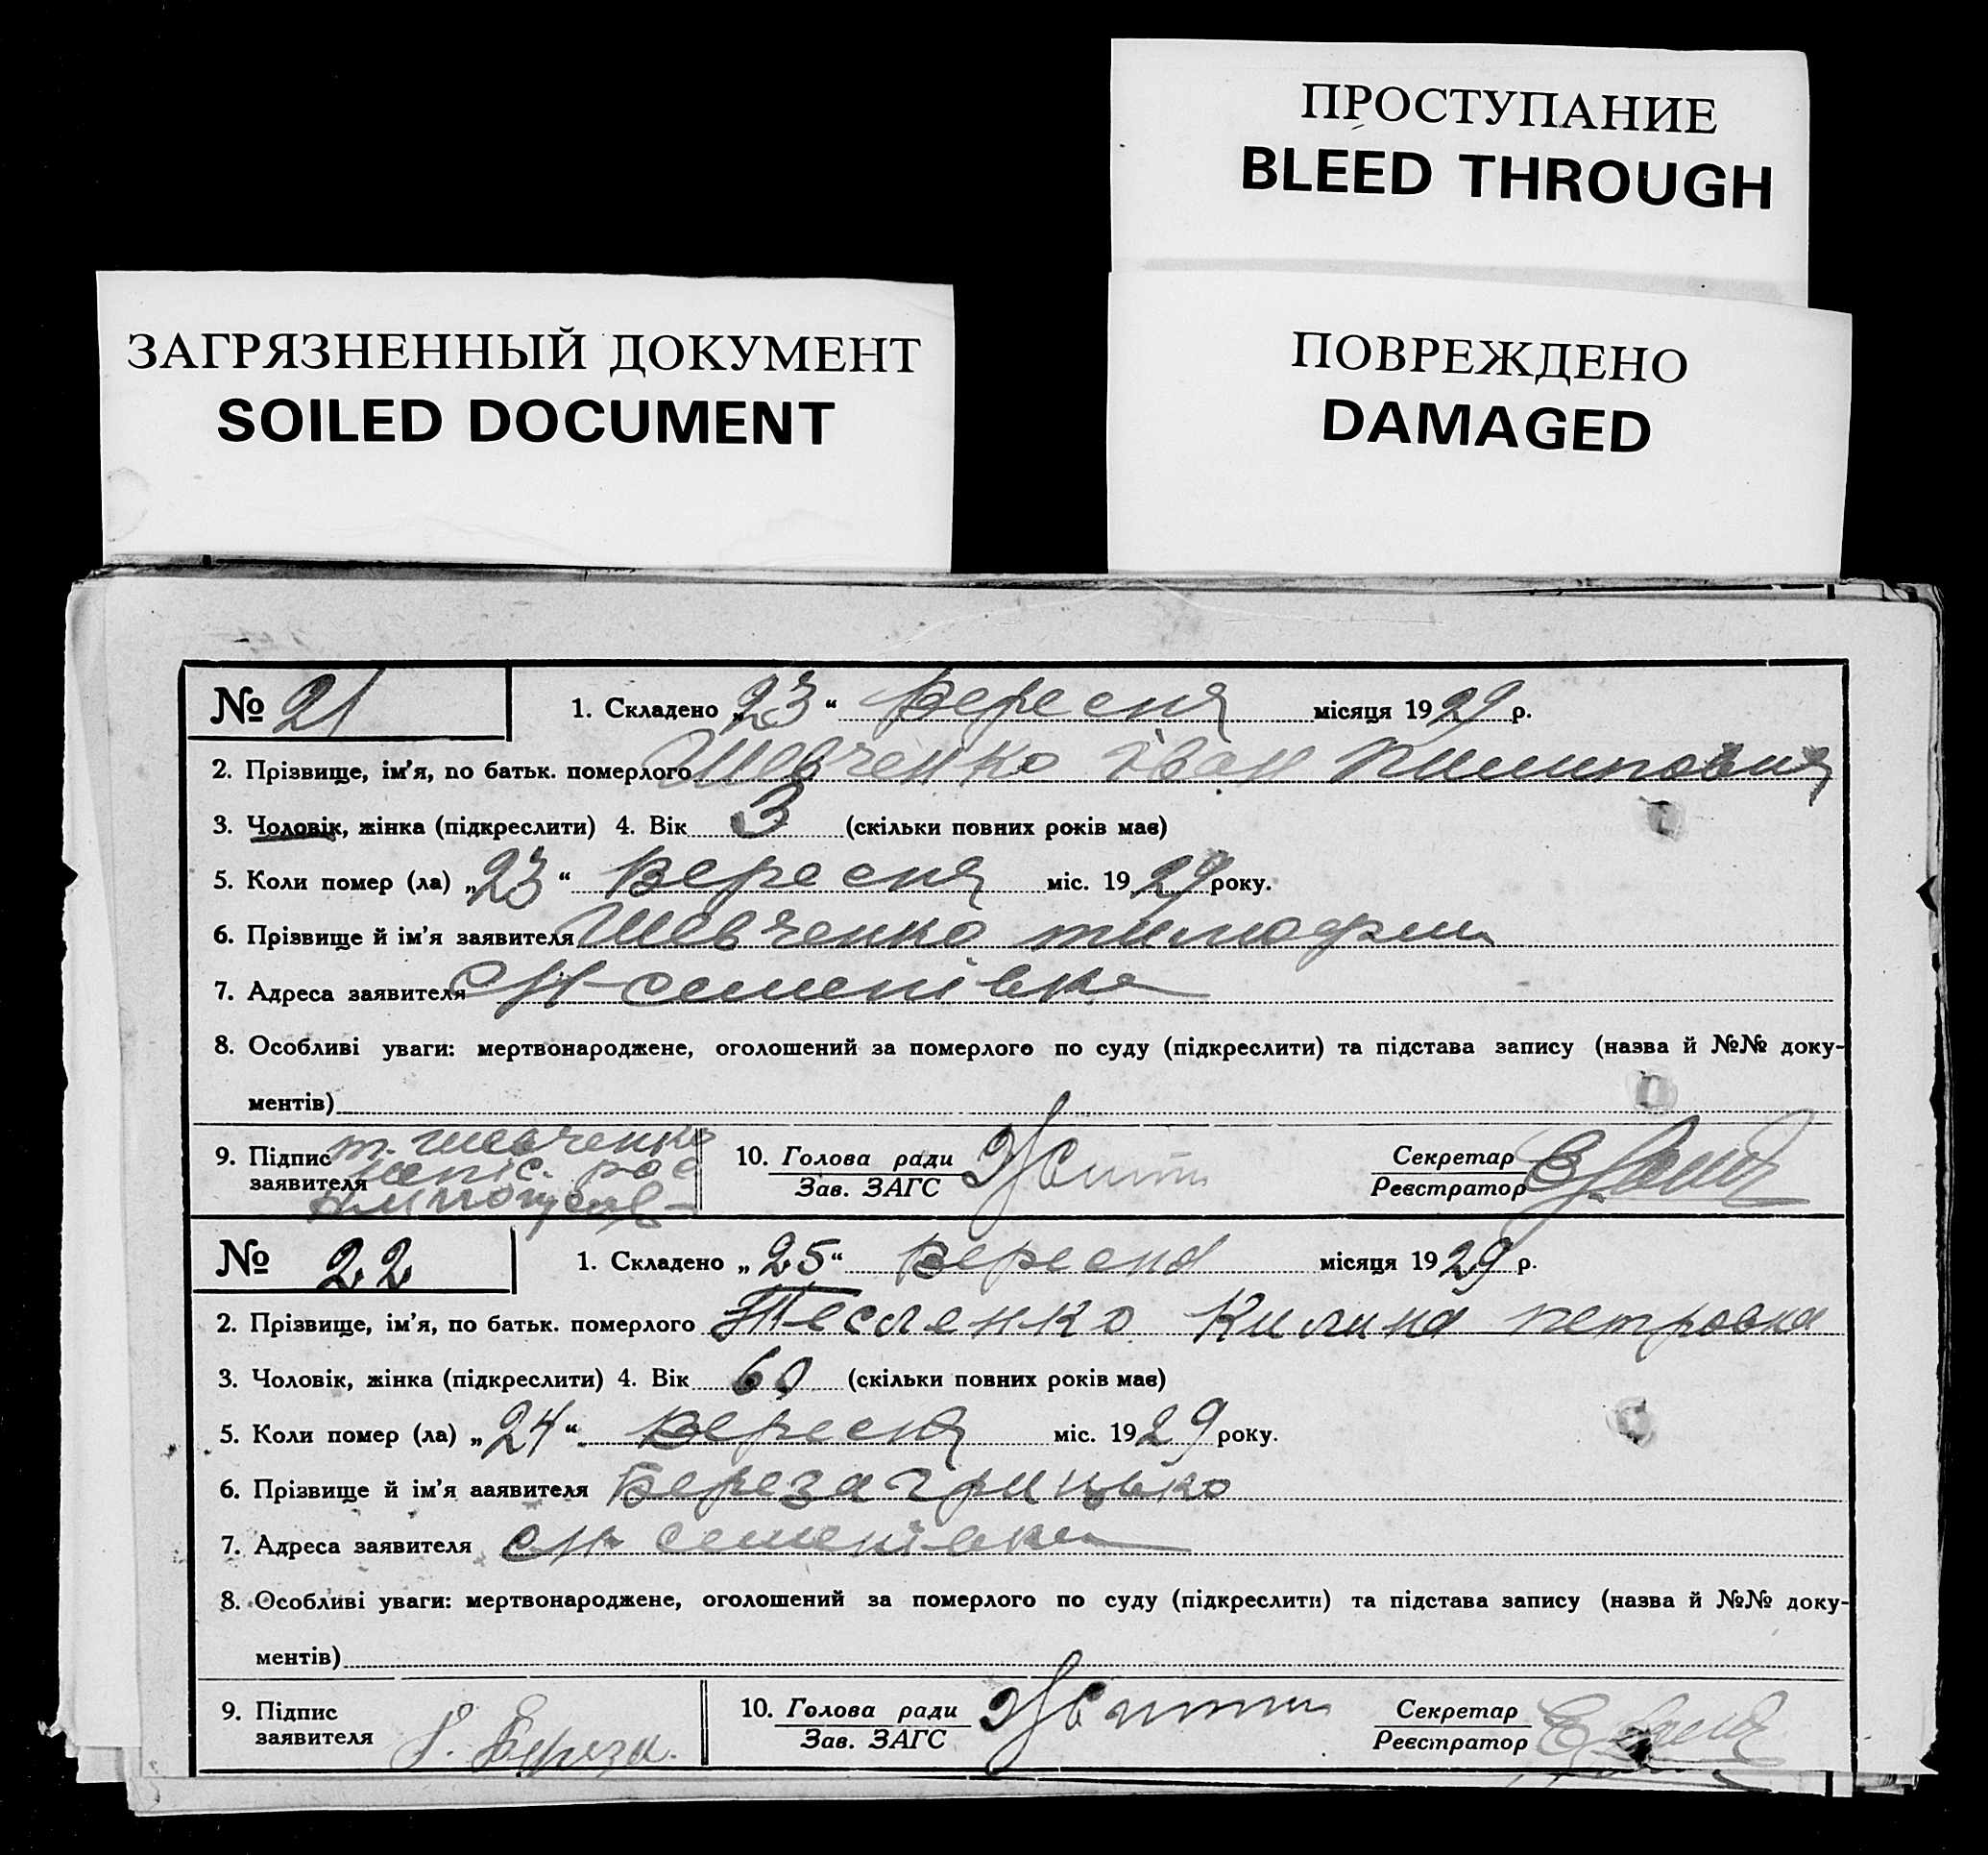 ПРОСТУПАНИЕ
BLEED THROUGH
ЗАГРЯЗНЕННЫЙ ДОКУМЕНТ
SOILED DOCUMENT
ПОВРЕЖДЕНО
DAMAGED
№ 21
1. Складено „23“ Вересня місяця 1929 р.
2. Прізвище, ім'я, по батьк. померлого Шевченко Іван Пилипович
3. Чоловік, жінка (підкреслити) 4. Вік 3 (скільки повних років має)
5. Коли помер (ла) „23“ Вересня міс. 1929 року.
6. Прізвище й ім'я заявителя Шевченко
7. Адреса заявителя семенівка
8. Особливі уваги: мертвонароджене, оголошений за померлого по суду (підкреслити) та підстава запису (назва й №№ доку-
ментів)
9. Підпис т. шевченко
заявителя
10. Голова ради
Зав. ЗАГС
Секретар
Реєстратор
№ 22
1. Складено „25“ Вересня місяця 1929 р.
2. Прізвище, ім'я, по батьк. померлого Тесленко Килина петровна
3. Чоловік, жінка (підкреслити) 4. Вік 60 (скільки повних років має)
5. Коли помер (ла) „24“ Вересня міс. 1929 року.
6. Прізвище й ім'я заявителя Береза грицько
7. Адреса заявителя семенівка
8. Особливі уваги: мертвонароджене, оголошений за померлого по суду (підкреслити) та підстава запису (назва й №№ доку-
ментів)
9. Підпис
заявителя Г. Береза.
10. Голова ради
Зав. ЗАГС
Секретар
Реєстратор